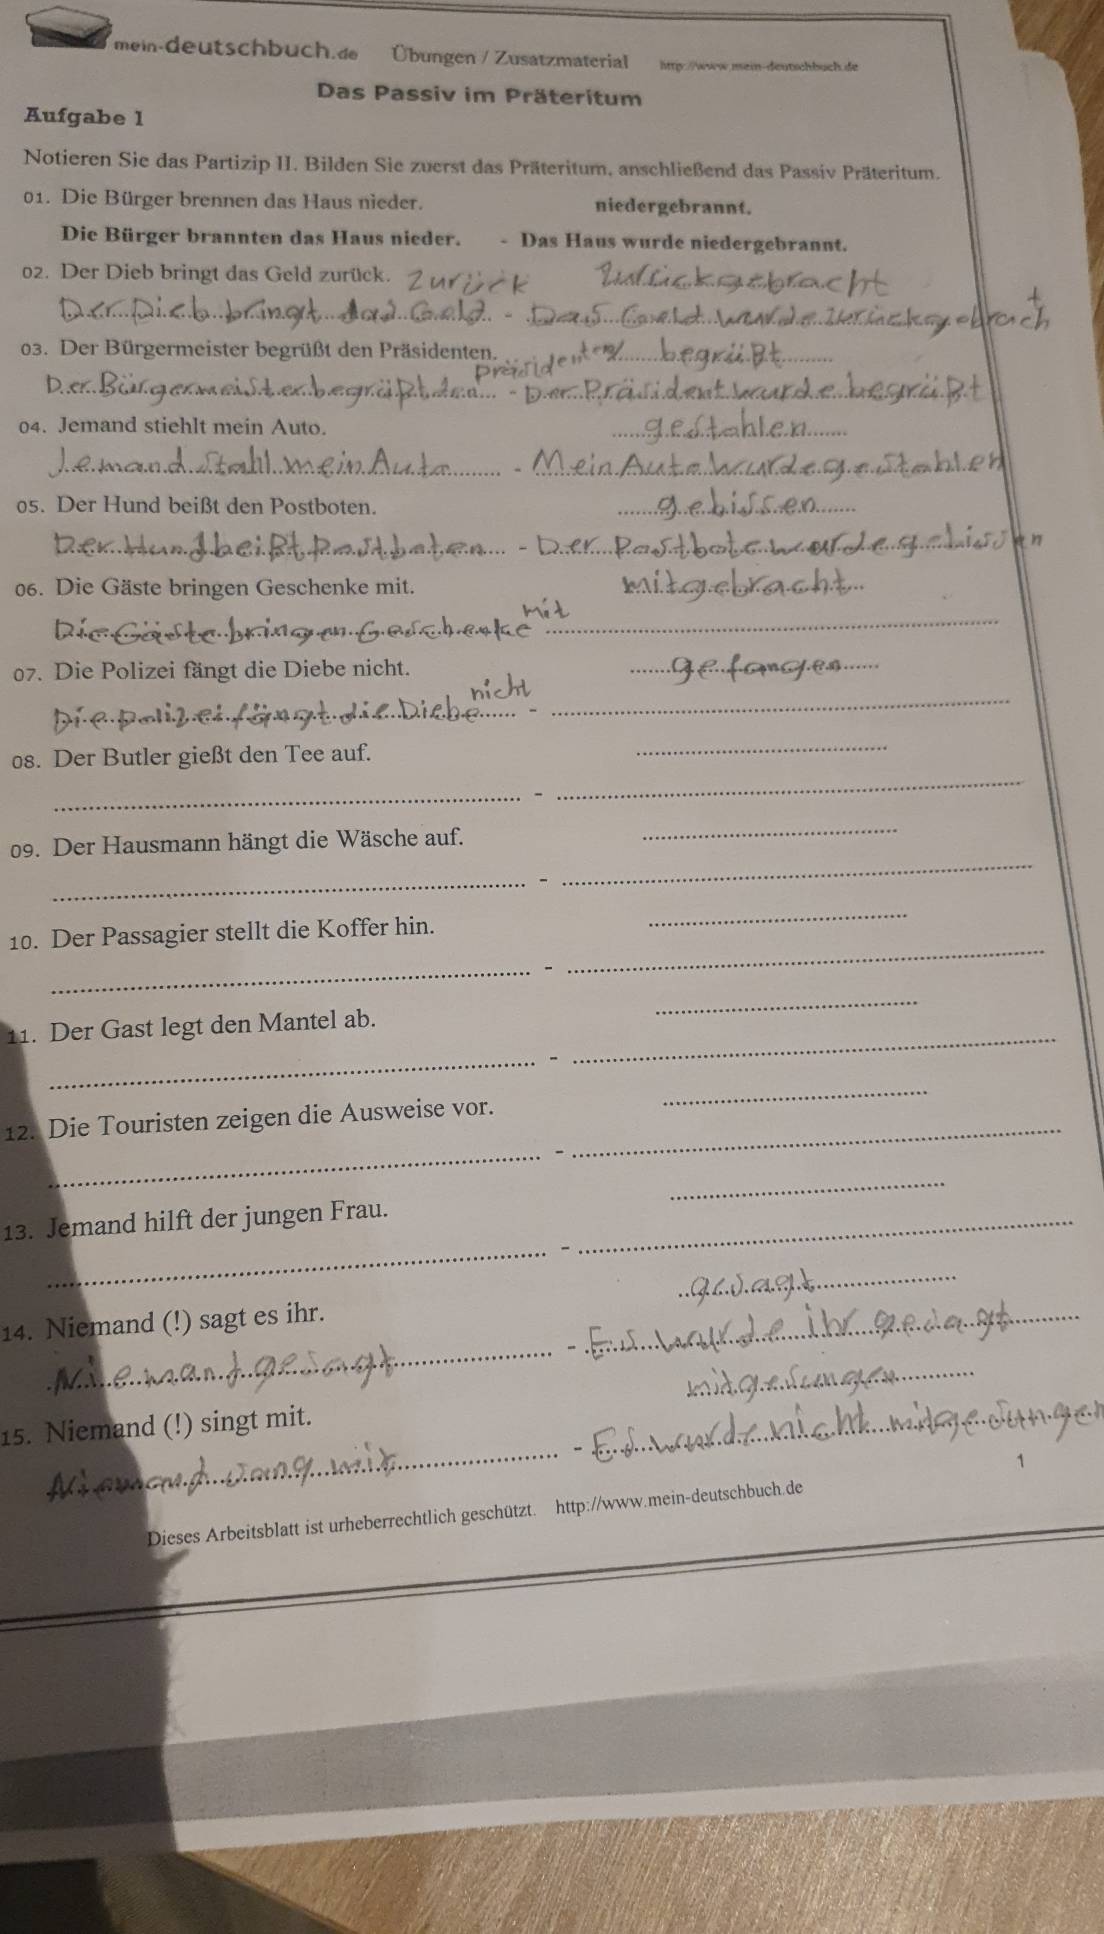 mein-deutschbuch.de Übungen / Zusatzmaterial http://www.mein-deutschbuch.de
Das Passiv im Präteritum
Aufgabe 1
Notieren Sie das Partizip II. Bilden Sie zuerst das Präteritum, anschließend das Passiv Präteritum.
01. Die Bürger brennen das Haus nieder. niedergebrannt.
Die Bürger brannten das Haus nieder. - Das Haus wurde niedergebrannt.
02. Der Dieb bringt das Geld zurück. zurück zurückgebracht
Der Dieb bringt das Geld - Das Geld wurde zurückgebracht
03. Der Bürgermeister begrüßt den Präsidenten. präsidenten begrüßt
Der Bürgermeister begrüßt den - Der Präsident wurde begrüßt
04. Jemand stiehlt mein Auto. gestohlen
Jemand stahl mein Auto - Mein Auto wurde gestohlen
05. Der Hund beißt den Postboten. gebissen
Der Hund beißt postboten - Der Postbote wurde gebissen
06. Die Gäste bringen Geschenke mit. mitgebracht
Die Gäste bringen Geschenke mit
07. Die Polizei fängt die Diebe nicht. gefangen
Die polizei fängt die Diebe nicht -
08. Der Butler gießt den Tee auf.
-
09. Der Hausmann hängt die Wäsche auf.
-
10. Der Passagier stellt die Koffer hin.
-
11. Der Gast legt den Mantel ab.
-
12. Die Touristen zeigen die Ausweise vor.
-
13. Jemand hilft der jungen Frau.
-
14. Niemand (!) sagt es ihr. gesagt
Niemand gesagt - Es wurde ihr gesagt
15. Niemand (!) singt mit. mitgesungen
Niemand sang mit - Es wurde nicht mitgesungen
1
Dieses Arbeitsblatt ist urheberrechtlich geschützt. http://www.mein-deutschbuch.de